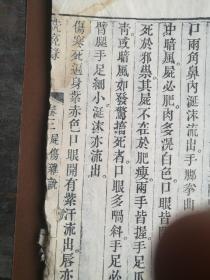 口兩角鼻內涎沫流出手脚拳曲
冲暗風屍必肥肉多滉白色口眼
死於邪祟其屍不在於肥瘦兩手皆握手足
青或暗風如發驚搐死者口眼多喎斜手足必
臂腿手足細小涎沫亦流出
傷寒死遍身紫赤色口眼開有紫汗流出唇亦
洗冤錄
卷二屍傷雜說